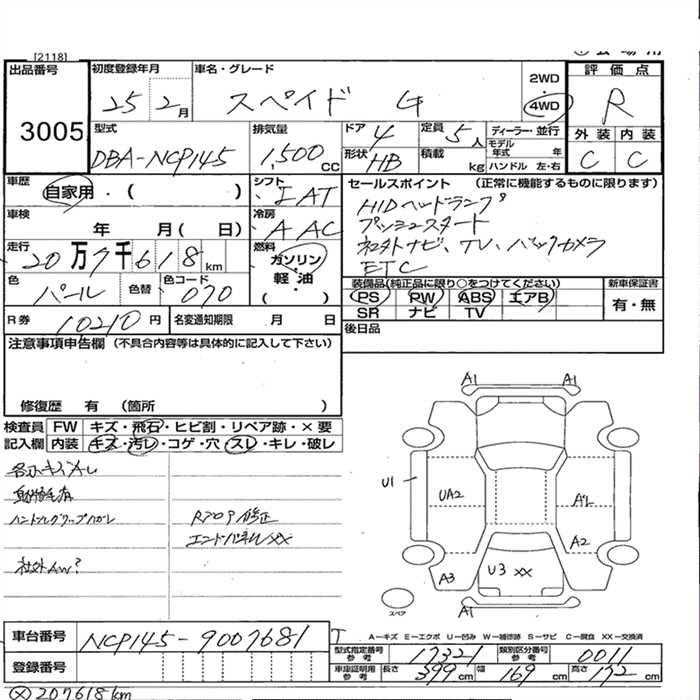 [2118]
出品番号
3005
初度登録年月
25 2月
車名・グレード
スペイド G
2WD
4WD
評価点
R
外装 内装
C C
型式
DBA-NCP145
排気量
1,500cc
ドア 4
定員 5人
ディーラー・並行
モデル年式 年
形状 HB
積載 kg
ハンドル 左・右
車歴
自家用・( )
シフト
IAT
セールスポイント (正常に機能するものに限ります)
HIDヘッドランプ
プッシュスタート
社外ナビ、TV、バックカメラ
ETC
車検
年 月( 日)
冷房
AAC
走行
20万7千618km
燃料
ガソリン・軽油
( )
色
パール
色替
色コード
070
装備品(純正品に限り○をつけてください)
PS PW ABS エアB
SR ナビ TV
新車保証書
有・無
R券 10210円
名変通知期限 月 日
後日品
注意事項申告欄 (不具合内容等は具体的に記入して下さい)
修復歴 有 (箇所 )
検査員記入欄
FW キズ・飛石・ヒビ割・リペア跡・×要
内装 キズ・汚レ・コゲ・穴・スレ・キレ・破レ
ハンドルグリップハガレ
社外AW?
RフロアP修正
エンドパネルXX
A1 A1
U1
UA2
A2
A3
U3 XX
A1
スペア
車台番号
NCP145-9007681
登録番号
A―キズ E―エクボ U―凹み W―補修跡 S―サビ C―腐食 XX―交換済
型式指定番号 参考 17321
類別区分番号 参考 0011
車庫証明用 参考
長さ 399cm
幅 169cm
高さ 172cm
207618km